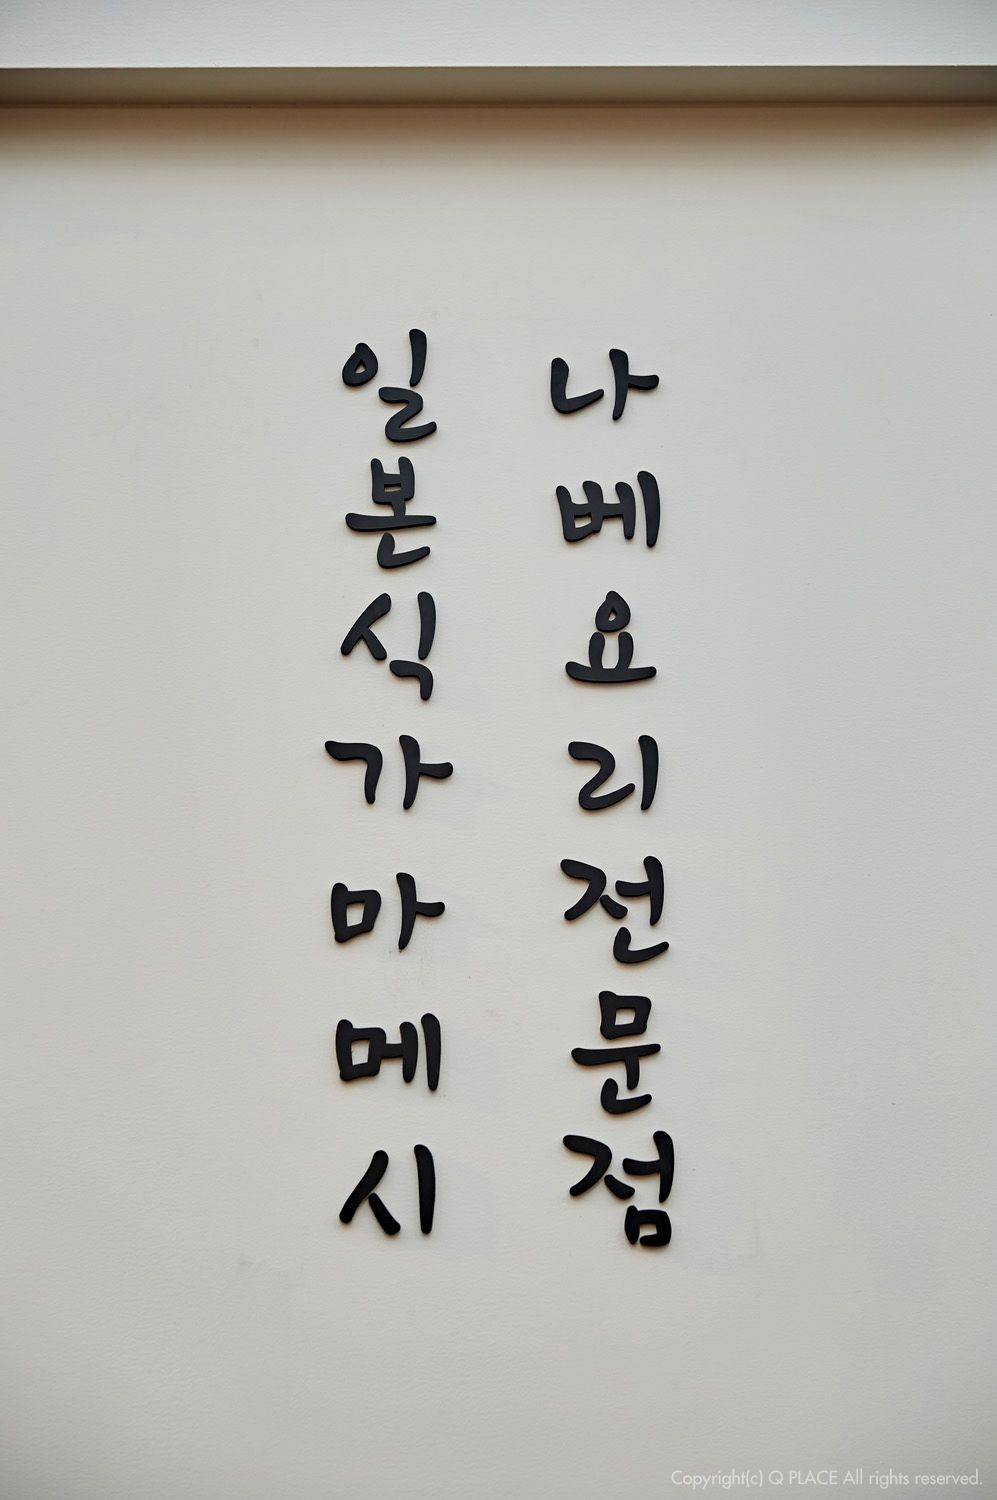 일본식가마메시
나베요리전문점
Copyright(c) Q PLACE All rights reserved.